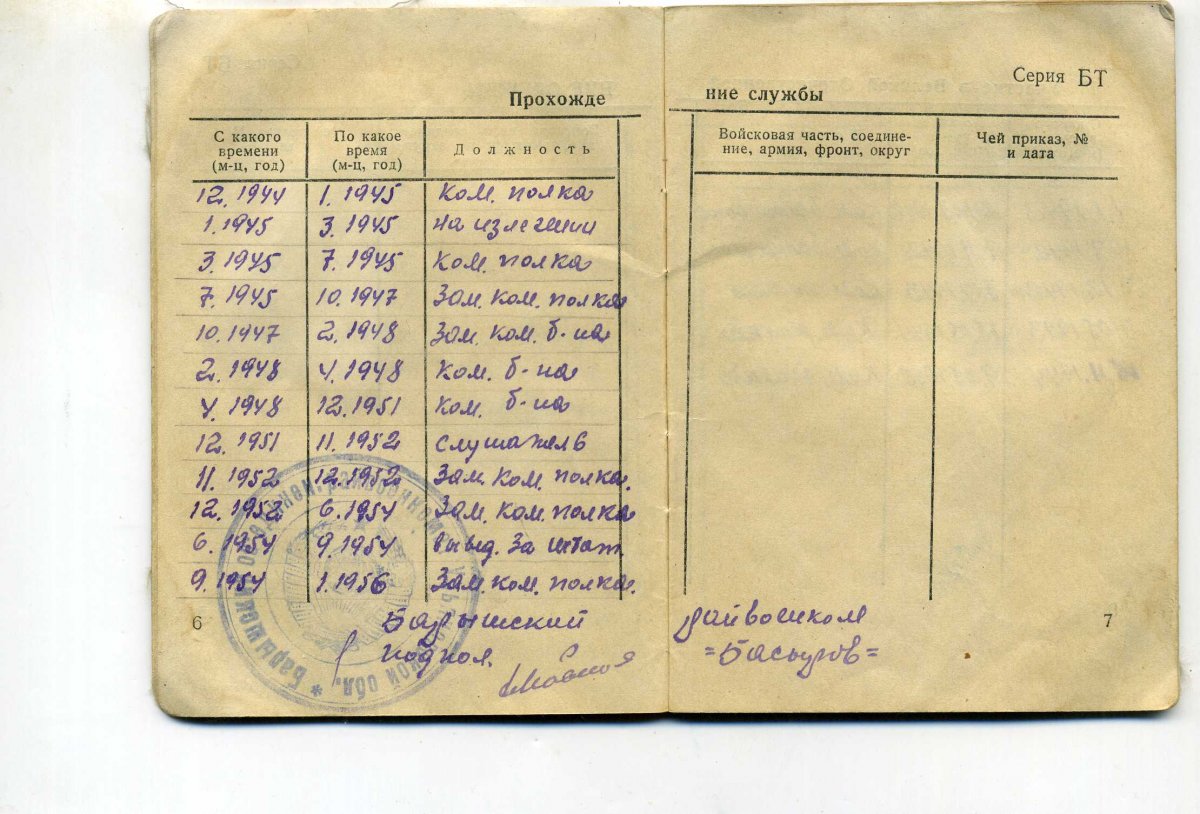 Серия БТ
Прохождение службы
С какого времени (м-ц, год) По какое время (м-ц, год) Должность Войсковая часть, соединение, армия, фронт, округ Чей приказ, № и дата
12.1944 1.1945 ком. полка
1.1945 3.1945 на излечении
3.1945 7.1945 ком. полка
7.1945 10.1947 Зам. ком. полка
10.1947 2.1948 Зам. ком. б-на
2.1948 4.1948 ком. б-на
4.1948 12.1951 ком. б-на
12.1951 11.1952 слушатель
11.1952 12.1952 Зам. ком. полка.
12.1952 6.1954 Зам. ком. полка
6.1954 9.1954 вывед. за штат.
9.1954 1.1956 Зам. ком. полка.
Барышский райвоенком
подпол. =Басыров=
6 7